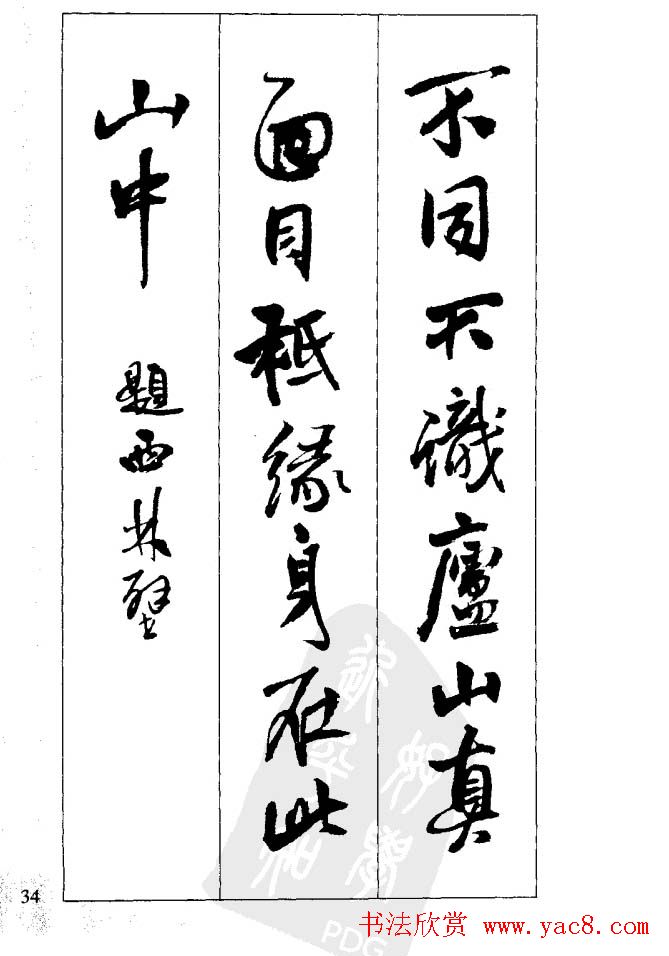 不同不識廬山真
面目秖緣身在此
山中 題西林壁
34
PDG
书法欣赏 www.yac8.com